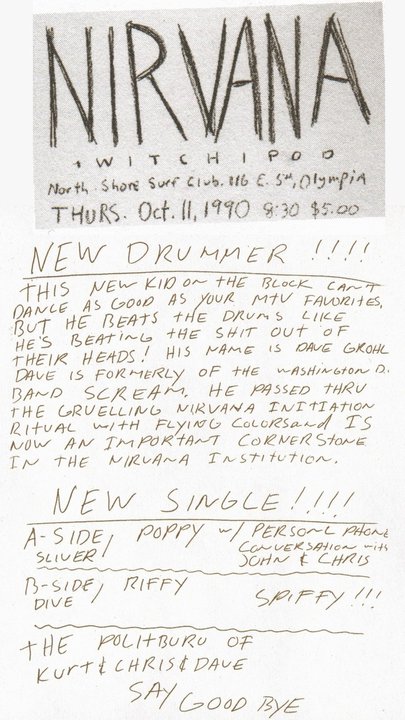 NIRVANA
+ WITCHYPOO
North Shore Surf Club. 116 E. 5th, Olympia
THURS. Oct. 11, 1990 8:30 $5.00
NEW DRUMMER !!!!
THIS NEW KID ON THE BLOCK CAN'T
DANCE AS GOOD AS YOUR MTV FAVORITES,
BUT HE BEATS THE DRUMS LIKE
HE'S BEATING THE SHIT OUT OF
THEIR HEADS! HIS NAME IS DAVE GROHL
DAVE IS FORMERLY OF THE WASHINGTON D.
BAND SCREAM. HE PASSED THRU
THE GRUELLING NIRVANA INITIATION
RITUAL WITH FLYING COLORS and IS
NOW AN IMPORTANT CORNERSTONE
IN THE NIRVANA INSTITUTION.
NEW SINGLE!!!!
A-SIDE, POPPY w/ PERSONL PHONE
SLIVER CONVERSATION with
JOHN & CHRIS
B-SIDE, RIFFY
DIVE SPIFFY!!!
THE POLITBURO OF
KURT & CHRIS & DAVE
SAY GOOD BYE